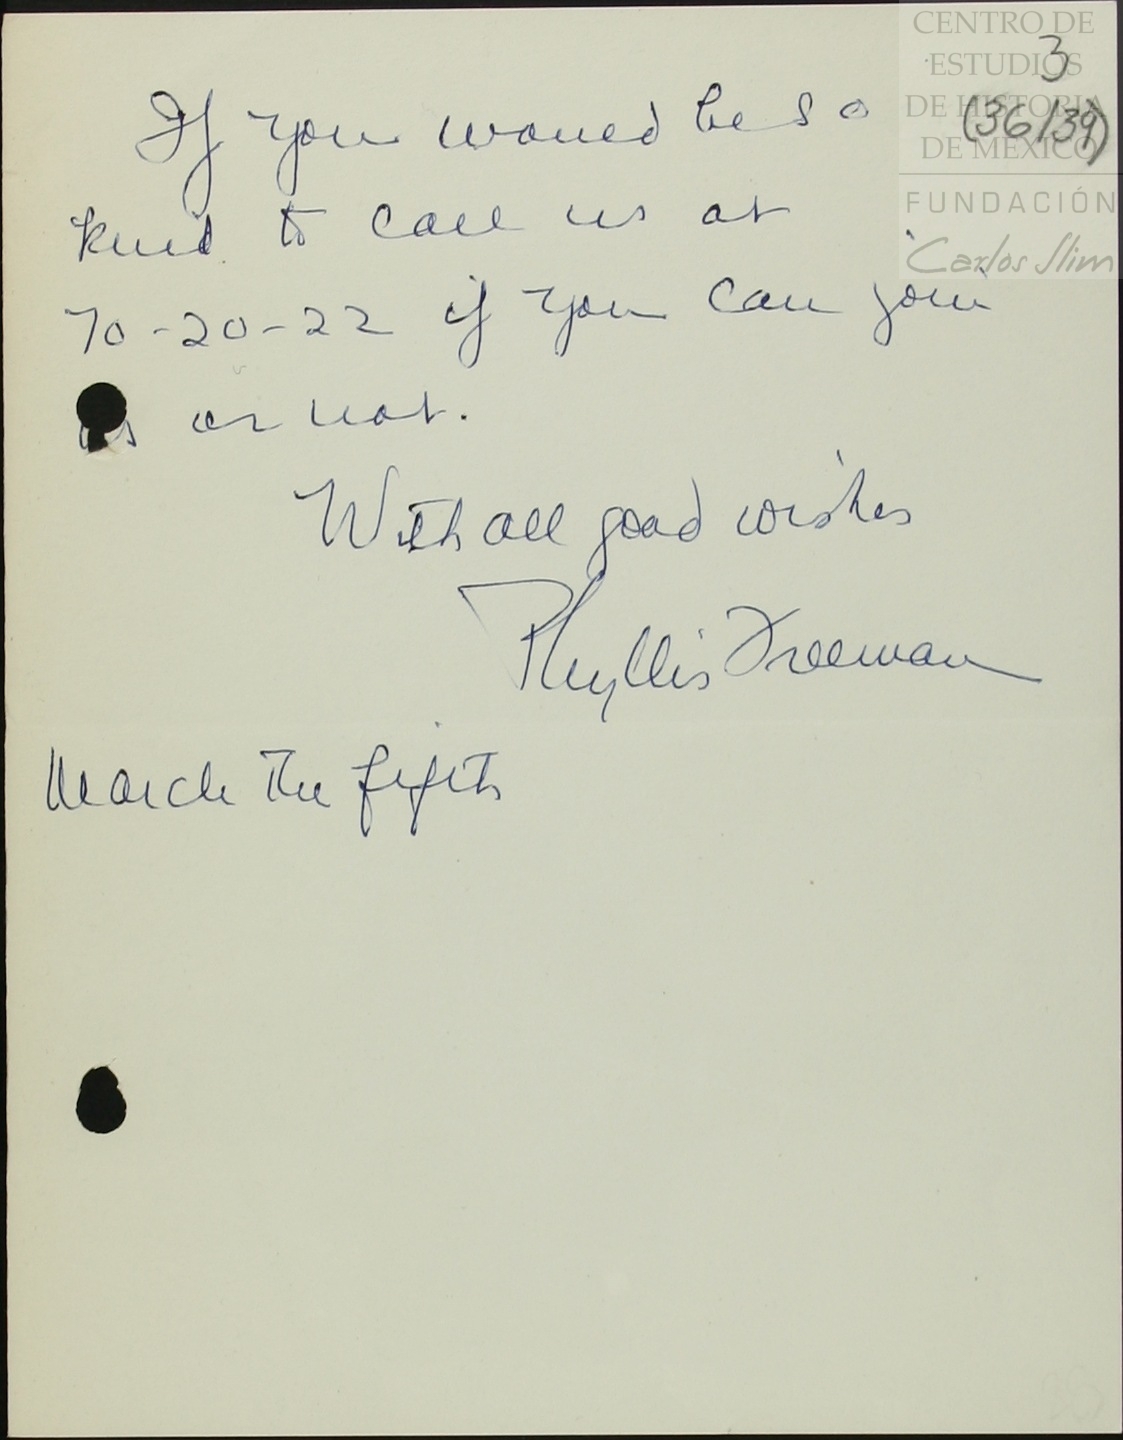 CENTRO DE
ESTUDIOS
DE HISTORIA
DE MÉXICO
FUNDACIÓN
Carlos Slim
3
(36/39)
If you would be so
kind to call us at
70-20-22 if you can join
us or not.
With all good wishes
Phyllis Freeman
March the fifth